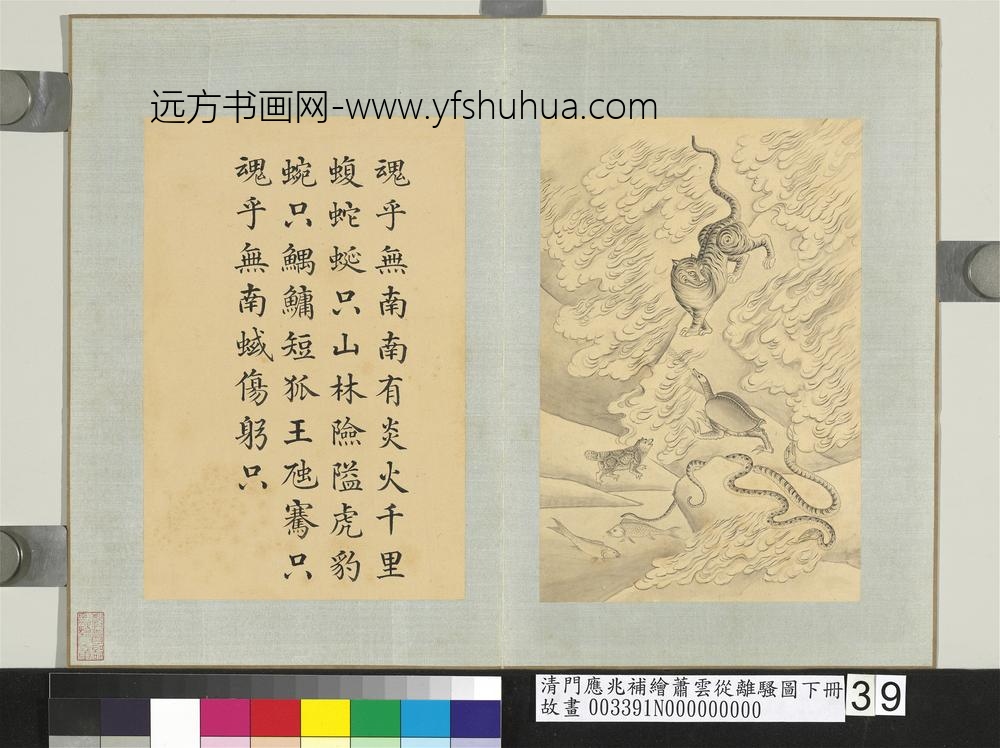 远方书画网-www.yfshuhua.com
魂乎無南南有炎火千里
蝮蛇蜒只山林險隘虎豹
蜿只鰅鱅短狐王虺騫只
魂乎無南蜮傷躬只
清門應兆補繪蕭雲從離騷圖下冊
故畫 003391N000000000
39